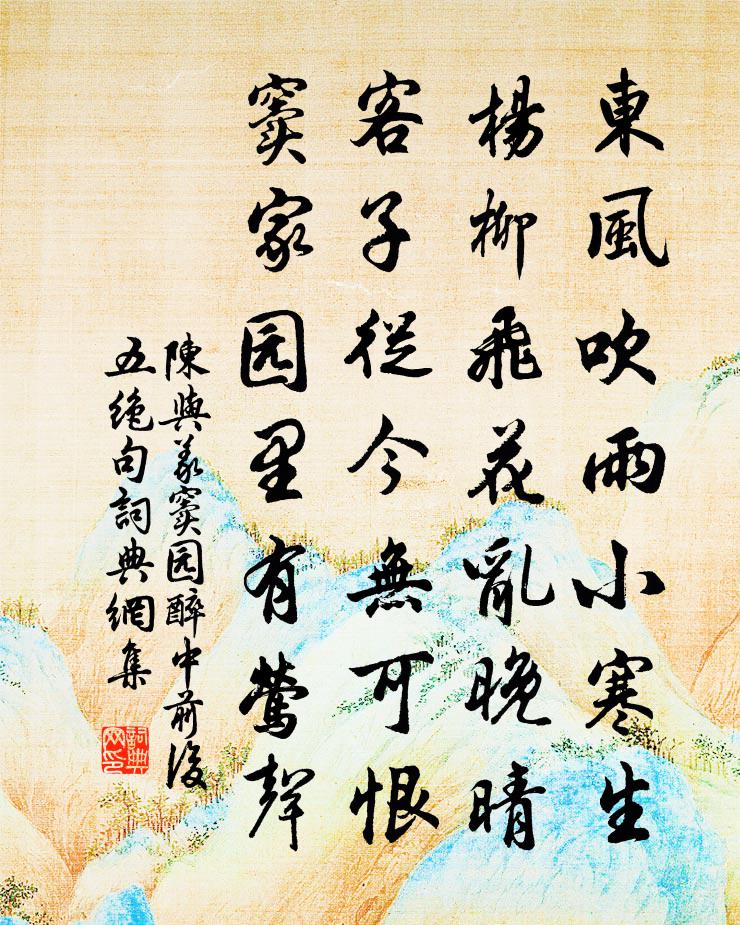 東風吹雨小寒生
楊柳飛花亂晚晴
客子從今無可恨
窦家园里有莺聲
陳與義窦园醉中前後
五絶句詞典網集
詞典
网印